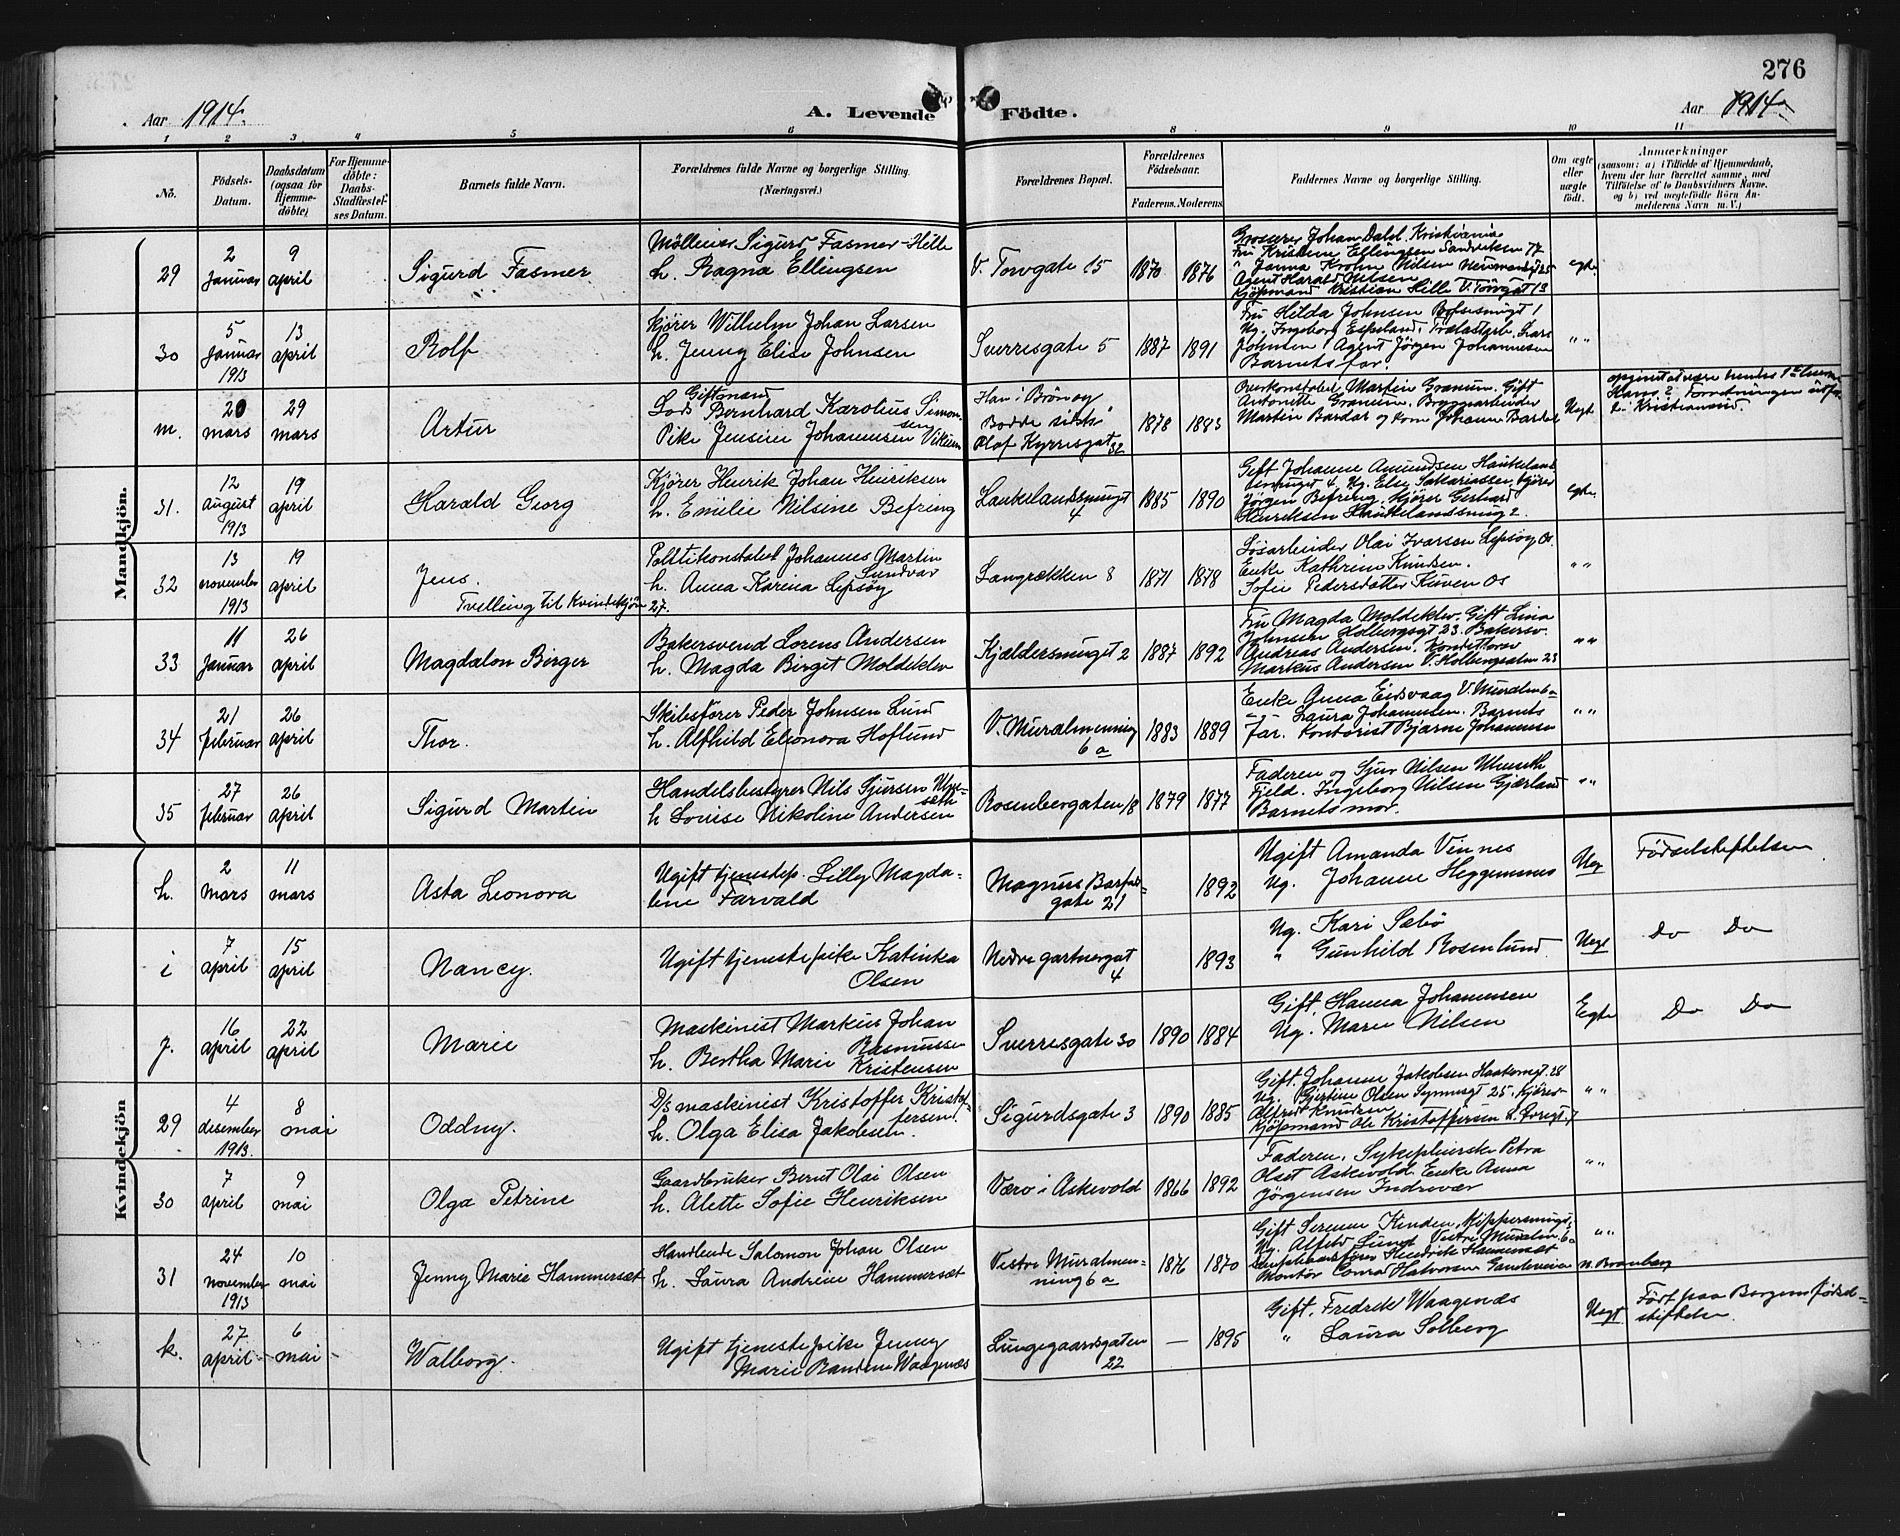 276
Aar 1914.
A. Levende Födte.
Aar 1914.
1 2 3 4 5 6 8 9 10 11
No.
Födsels-
Datum.
Daabsdatum
(ogsaa for
Hjemme-
döbte)
For Hjemme-
döbte:
Daabs-
Stadfæstel-
ses Datum.
Barnets fulde Navn.
Forældrenes fulde Navne og borgerlige Stilling.
(Næringsvei.)
Forældrenes Bopæl.
Forældrenes
Födselsaar.
Faderens. Moderens
Faddernes Navne og borgerlige Stilling.
Om ægte
eller
uægte
födt.
Anmærkninger
(saasom: a) i Tilfælde af Hjemmedaab,
hvem der har forrettet samme, med
Tilföielse af to Daabsvidners Navne,
og b) ved uægtefödte Börn An-
melderens Navn m. V.)
Mandkjön.
29
2
Januar
9
april
Sigurd Fasmer
Möllener Sigurd Fasmer Hille
h. Ragna Ellingsen
V. Torvgate 15
1870
1876
Grosserer Johan Dahl, Kristiania
Fru Kristine Ellingsen Sandviken 77
" Janna Krohn Nilsen
Agent Harald Nilsen
Kjöpmand Kristian Hille V. Torvgt 13
egte.
30
5
Januar
1913
13
april
Rolf
Kjører Wilhelm Johan Larsen
h. Jenny Elise Johnsen
Sverresgate 5
1887
1891
Fru Hilda Johnsen
Ug. Ingeborg Espeland. Lars
Johnsen Agent Jörgen Johannesen
Barnets far.
" "
m.
20
mars
29
mars
Artur
Giftmand
Bernhard Karolius Simon-
sen
Pike Jensine Johannesen
Han i Brönöy
Bodde sidst i
Olaf Kyrresgat 32
1878
1883
Overkonstabel Martin Granum. Gift
Antonette Granum. Bryggearbeider
Martin Bardar og kone Johanne
Uegte
Kristiansund.
31.
12
August
1913
19
april
Harald Georg
Kjører Henrik Johan Henriksen
h. Emilie Nilsine Befring
Haukelandssmuget
4
1885
1890
Gift Johanne Amundsen Haukelands
smuget 4. Ug. Else Sakariassen, Kjører
Jörgen Befring. Kjører Gerhard
Henriksen Haukelandssmug 2.
egte.
32
13
november
1913
19
april
Jens.
Tvelling til Kvindekjøn 27.
Politikonstabel Johannes Martin
Sundvor
h. Anna Karina Lepsöy
Langrækken 8
1871
1878
Løsarbeider Olai Ivarsen Lepsöy Os.
Enke Kathrine Knudsen.
Sofie Pedersdatter Kuven Os
" "
33
11
Januar
26
april
Magdalon Birger
Bakersvend Lorens Andersen
h. Magda Birgit Moldeklev
Kjældersmuget 2
1887
1892
Fru Magda Moldeklev. Gift Lina
Johnsen Holbergsgt 23. Bakersv.
Andreas Andersen. Konditlorer
Markus Andersen V. Holbergsalm 23
" "
34
21
februar
26
april
Thor.
Skibsfører Peder Johnsen Lund
h. Alfhild Eleonora Hoflund
V. Muralmenning
6 a
1883
1889
Enke Guna Eidsvaag V. Muralm 6a
" Laura Johannesen. Barnets
far. Kontorist Bjarne Johannesen
" "
35
27
februar
26
april
Sigurd Martin
Handelsbestyrer Nils Sjursen
h Lovise Nikoline Andersen
Rosenbergaten 18
1879
1877
Faderen og Sjur Nilsen
Fjeld. Ingeborg Nilsen Gjærland
Barnets mor.
" "
Kvindekjön
h.
2
mars
11
mars
Asta Leonora
Ugift tjenestep. Lilly Magda-
lene Farvald
Magnus Barfots-
gate 21
1892
Ugift Amanda Vinnes
Ug. Johanne Heggumnes
Ueg
Födselstiftelsen
i
7
april
15
april
Nancy.
Ugift tjenestepike Katinka
Olsen
Nedre gartnergat
4
1893
Ug. Kari Sæbö
" Gunhild Rosenlund.
Uegt
Do Do
j.
16
april
22
april
Marie
Maskinist Markus Johan
Rasmussen
h. Bertha Marie Kristensen
Sverresgate 30
1890
1884
Gift. Hanna Johannesen
Ug. Marie Nilsen
Egte
Do Do
29
4
desember
1913.
8
mai
Oddny.
D/S maskinist Kristoffer Kristof-
fersen.
h. Olga Elisa Jakobsen.
Sigurdsgate 3
1890
1885
Gift. Johanne Jakobsen Haakonsgt. 28
Ug. Gjertine Olsen 25. Kjøresv.
Alfred Knudsen
Kjöpmand Ole Kristoffersen
" "
30
7
april
9
mai
Olga Petrine
Gaardbruker Bernt Olai Olsen
h. Alette Sofie Henriksen
Værö i Askevold
1866
1892
Faderen. Sykepleierske Petra
Olset Askevold. Enke Anna
Jörgensen Indrevær
" "
31
24
november
1913
10
mai
Jenny Marie Hammersæt
Handlende Salomon Johan Olsen
h. Laura Andrine Hammersæt
Vestre Muralmen-
ning 6a
1876
1870
Gift Serene Kinden,
Ug. Alfild Lund Vestre Muralm. 6a
Hendrik Hammersæt
Montør Conrad Halvorsen
" "
k.
27
april
6
mai
Walborg.
Ugift tjenestepike Jenny
Marie Randine Waagenæs
Lungegaardsgaten
22
—
1895
Gift. Fredrik Waagenæs
" Laura Solberg
Uegt
Født paa Bergens fødsel-
stiftelse